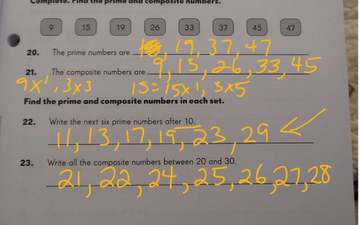 Complete. Find the prime and composite numbers.
9 15 19 26 33 37 45 47
20. The prime numbers are 19, 37, 47
21. The composite numbers are 9, 15, 26, 33, 45
9x1, 3x3 15=15x1, 5x3
Find the prime and composite numbers in each set.
22. Write the next six prime numbers after 10.
11, 13, 17, 19, 23, 29
23. Write all the composite numbers between 20 and 30.
21, 22, 24, 25, 26, 27, 28